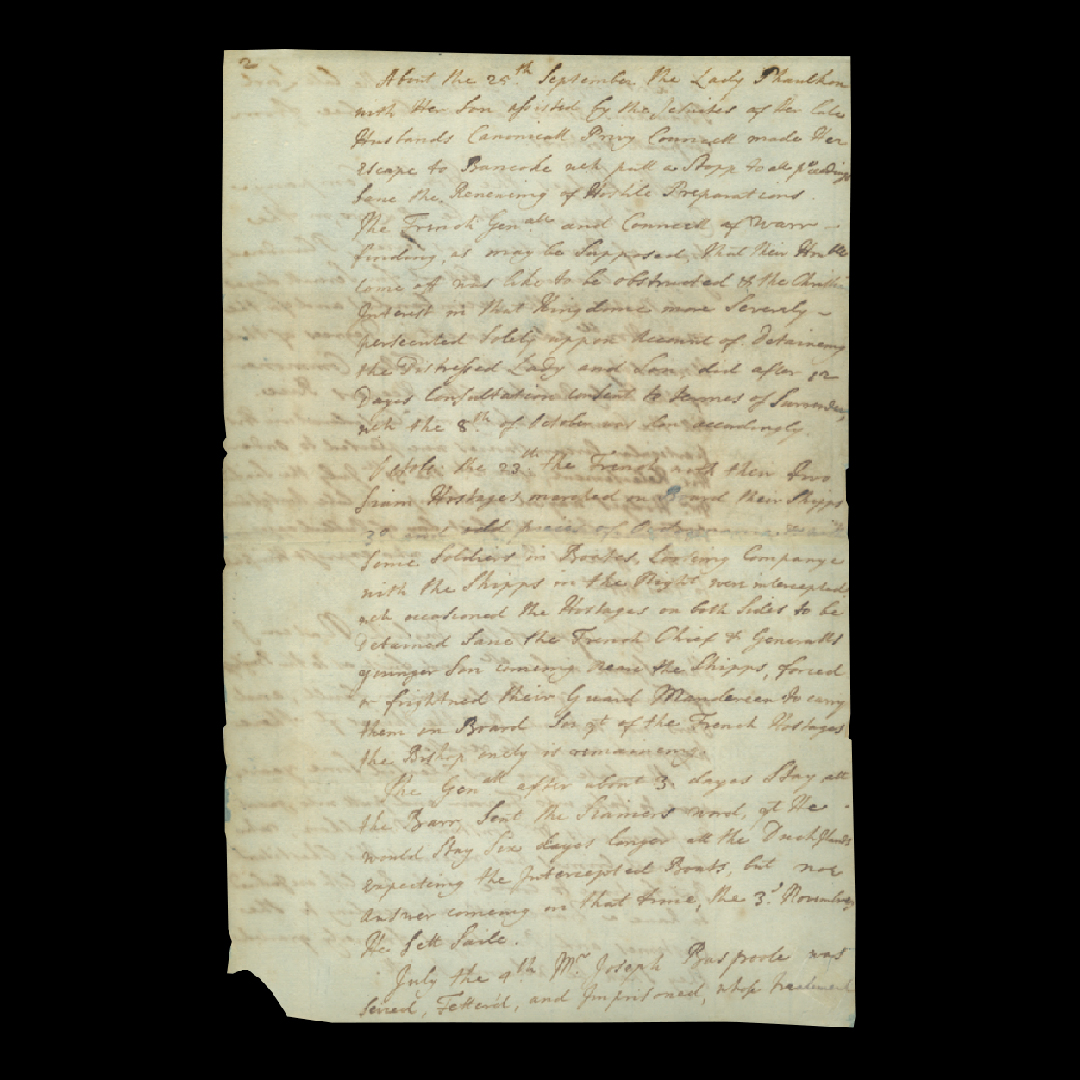 2
About the 25th September the Lady Phaulkon
with Her Son assisted by the Jesuites of Her late
Husbands Canonicall Privy Councell made Her
Escape to Bancoke wch putt a Stopp to all pceedings
Save the Renewing of Hostile Preparations.
The French Genall and Councell of Warr
finding, as may be Supposed, that their Honble
come off was like to be obstructed & the Christn
Interest in that Kingdome more Severely
persecuted Solely uppon Account of Detaineing
the Distressed Lady and Son did after
Dayes Consultation consent to termes of Surrender,
wch the 8th of October was don accordingly.
the 23th the French with their two
Siam Hostages marched on Board their Shipps
30 and odd pieces of
Some Soldiers in Boates, Looseing Companye
with the Shipps in the Night, were intercepted
wch occasioned the Hostages on both Sides to be
Detained Save the French Chief & Generalls
younger Son comeing neare the Shipps, forced
or frightned their Guard Mandereen to carry
them on Board So yt of the French Hostages
the Bishop onely is remaineing.
The Genall after about 3 dayes Stay att
the Barr, Sent the Siamers word, yt He
would Stay Six dayes longer att the Dutch Islands
expecting the Intercepted Boats, but noe
Answer comeing in that time, the 3d November
He Sett Saile.
July the 9th Mr Joseph was
Seized, Fetterd, and Imprisoned, whose treatment